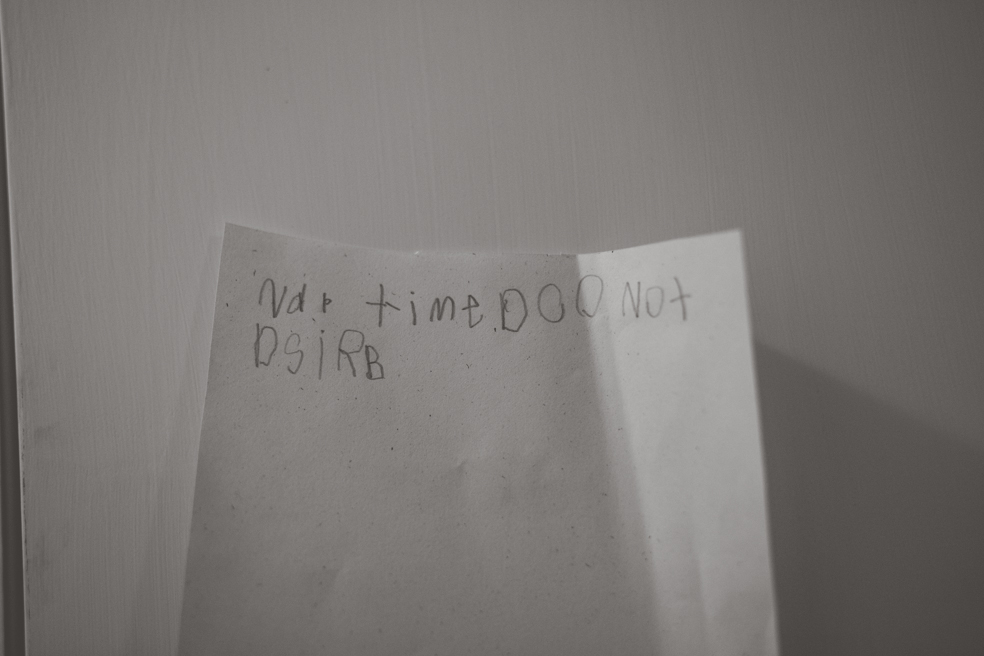 Nap time DOO Not
DSiRB